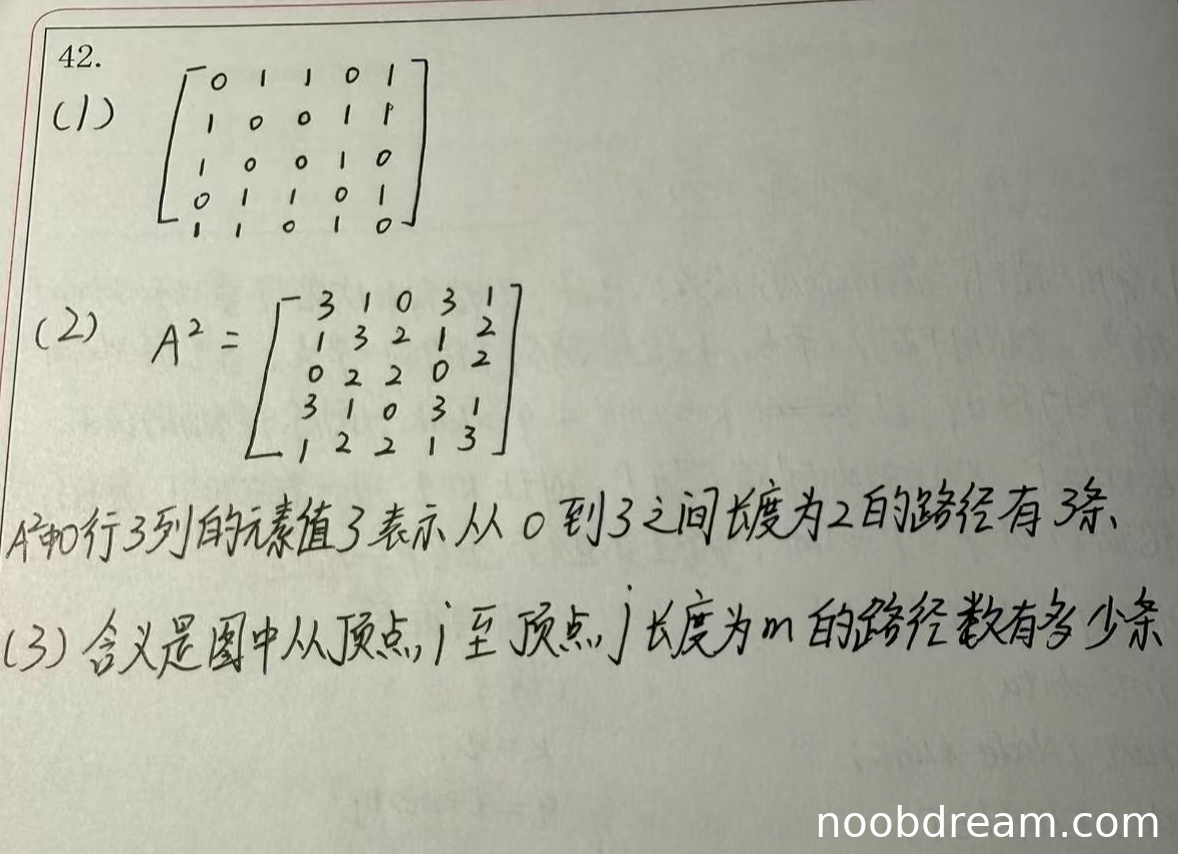 42.
(1)
0 1 1 0 1
1 0 0 1 1
1 0 0 1 0
0 1 1 0 1
1 1 0 1 0
(2) A² =
3 1 0 3 1
1 3 2 1 2
0 2 2 0 2
3 1 0 3 1
1 2 2 1 3
A²中0行3列的元素值3表示从0到3之间长度为2的路径有3条、
(3) 含义是图中从顶点i至顶点j长度为m的路径数有多少条
noobdream.com